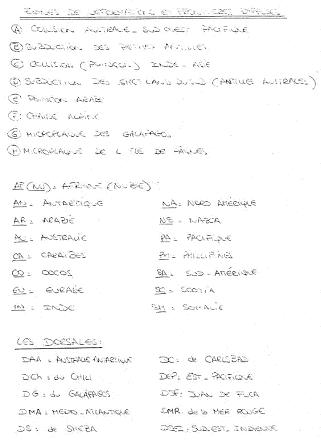 ZONES DE DEFORMATIONS ET FRONTIERES DIFFUSES
(A) COLLISION AUSTRALE - SUD OUEST PACIFIQUE
(B) SUBDUCTION DES PETITES ANTILLES
(C) COLLISION INDE - ASIE
(D) SUBDUCTION DES SHETLAND DU SUD (ANTILLES AUSTRALES)
(E) ARABE
(F) CHAINE ALPINE
(G) MICROPLAQUE DES GALAPAGOS.
(H) MICROPLAQUE DE L'ILE DE PÂQUES.
AF (NU) = AFRIQUE (NUBIE)
AN = ANTARCTIQUE
AR = ARABIE
AU = AUSTRALIE
CA = CARAIBES
CO = COCOS
EU = EURASIE
IN = INDE
NA = NORD AMERIQUE
NZ = NAZCA
PA = PACIFIQUE
PH = PHILIPPINES
SA = SUD-AMÉRIQUE
SC = SCOTIA
SM = SOMALIE
LES DORSALES:
DAA = AUSTRALE ANTARCTIQUE
DCh: du CHILI
DG: du GALAPAGOS
DMA: MEDIO-ATLANTIQUE
DS: de SHEBA
DC: de CARLSBAD
DEP: EST-PACIFIQUE
DJF: JUAN DE FUCA
DMR: de la MER ROUGE
DSEI: SUD.EST.INDIENNE